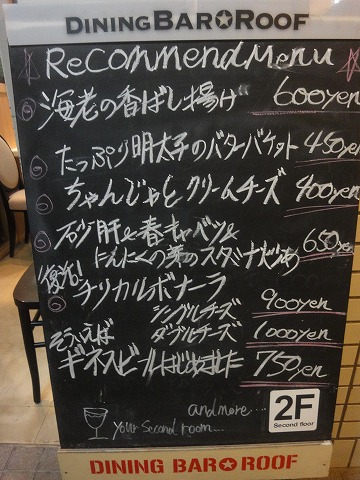 DINING BAR★ROOF
Recommend Menu
海老の香ばし揚げ 600yen
たっぷり明太子のバターバケット 450yen
ちゃんじゃとクリームチーズ 400yen
石少肝と春キャベツと
にんにくの芽のスタミナ炒め 650yen
復活！ チリカルボナーラ
シングルチーズ 900yen
そういえば ダブルチーズ 1000yen
ギネスビールはじめました 750yen
and more...
your second room...
2F
Second floor
DINING BAR★ROOF